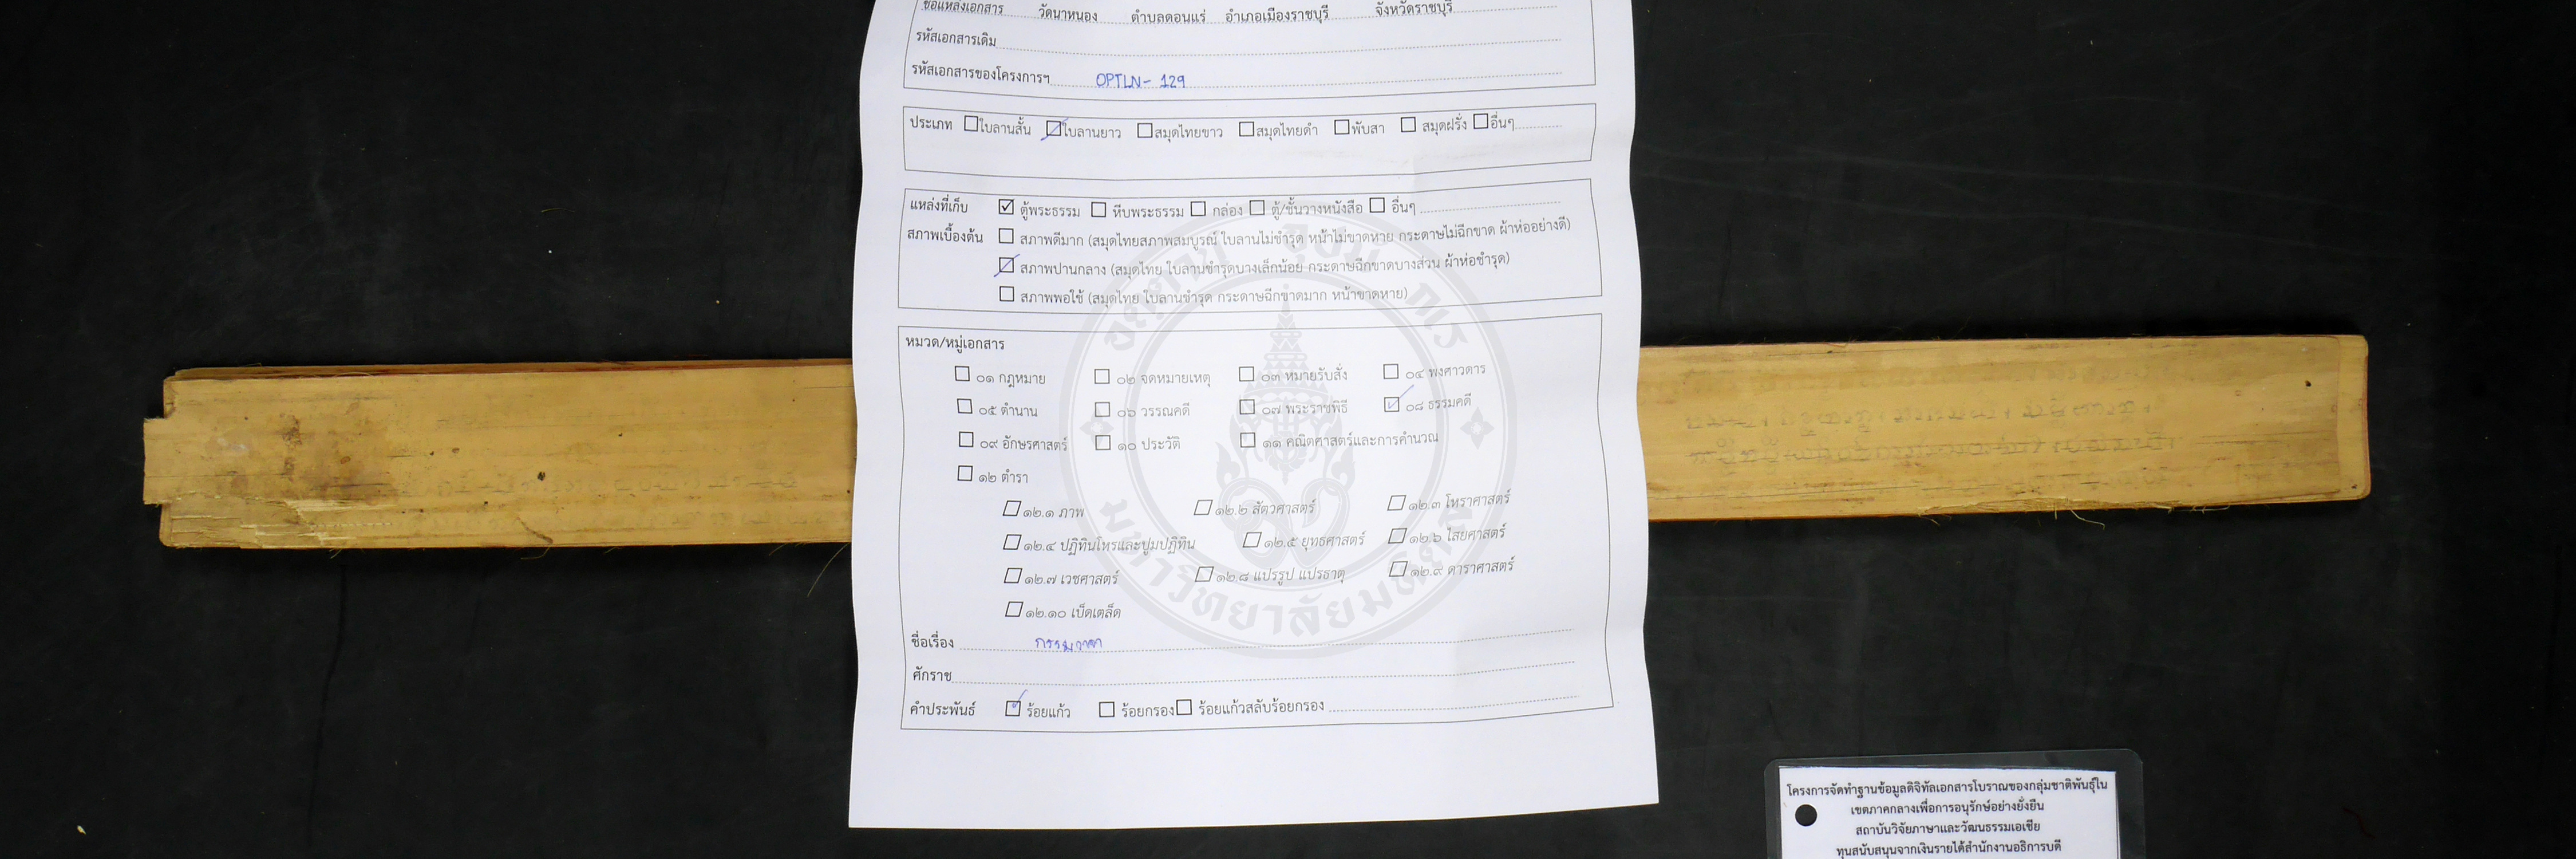 ชื่อแหล่งเอกสาร วัดนาหนอง ตำบลดอนแร่ อำเภอเมืองราชบุรี จังหวัดราชบุรี
รหัสเอกสารเดิม
รหัสเอกสารของโครงการฯ OPTLN-129
ประเภท ใบลานสั้น ใบลานยาว สมุดไทยขาว สมุดไทยดำ พับสา สมุดฝรั่ง อื่นๆ
แหล่งที่เก็บ ตู้พระธรรม หีบพระธรรม กล่อง ตู้/ชั้นวางหนังสือ อื่นๆ
สภาพเบื้องต้น สภาพดีมาก (สมุดไทยสภาพสมบูรณ์ ใบลานไม่ชำรุด หน้าไม่ขาดหาย กระดาษไม่ฉีกขาด ผ้าห่ออย่างดี)
สภาพปานกลาง (สมุดไทย ใบลานชำรุดบางเล็กน้อย กระดาษฉีกขาดบางส่วน ผ้าห่อชำรุด)
สภาพพอใช้ (สมุดไทย ใบลานชำรุด กระดาษฉีกขาดมาก หน้าขาดหาย)
หมวด/หมู่เอกสาร
๐๑ กฎหมาย ๐๒ จดหมายเหตุ ๐๓ หมายรับสั่ง ๐๔ พงศาวดาร
๐๕ ตำนาน ๐๖ วรรณคดี ๐๗ พระราชพิธี ๐๘ ธรรมคดี
๐๙ อักษรศาสตร์ ๑๐ ประวัติ ๑๑ คณิตศาสตร์และการคำนวณ
๑๒ ตำรา
๑๒.๑ ภาพ ๑๒.๒ สัตวศาสตร์ ๑๒.๓ โหราศาสตร์
๑๒.๔ ปฏิทินโหรและปูมปฏิทิน ๑๒.๕ ยุทธศาสตร์ ๑๒.๖ ไสยศาสตร์
๑๒.๗ เวชศาสตร์ ๑๒.๘ แปรรูป แปรธาตุ ๑๒.๙ ดาราศาสตร์
๑๒.๑๐ เบ็ดเตล็ด
ชื่อเรื่อง กรรมวาจา
ศักราช
คำประพันธ์ ร้อยแก้ว ร้อยกรอง ร้อยแก้วสลับร้อยกรอง
มหาวิทยาลัยมหิดล
โครงการจัดทำฐานข้อมูลดิจิทัลเอกสารโบราณของกลุ่มชาติพันธุ์ใน
เขตภาคกลางเพื่อการอนุรักษ์อย่างยั่งยืน
สถาบันวิจัยภาษาและวัฒนธรรมเอเชีย
ทุนสนับสนุนจากเงินรายได้สำนักงานอธิการบดี